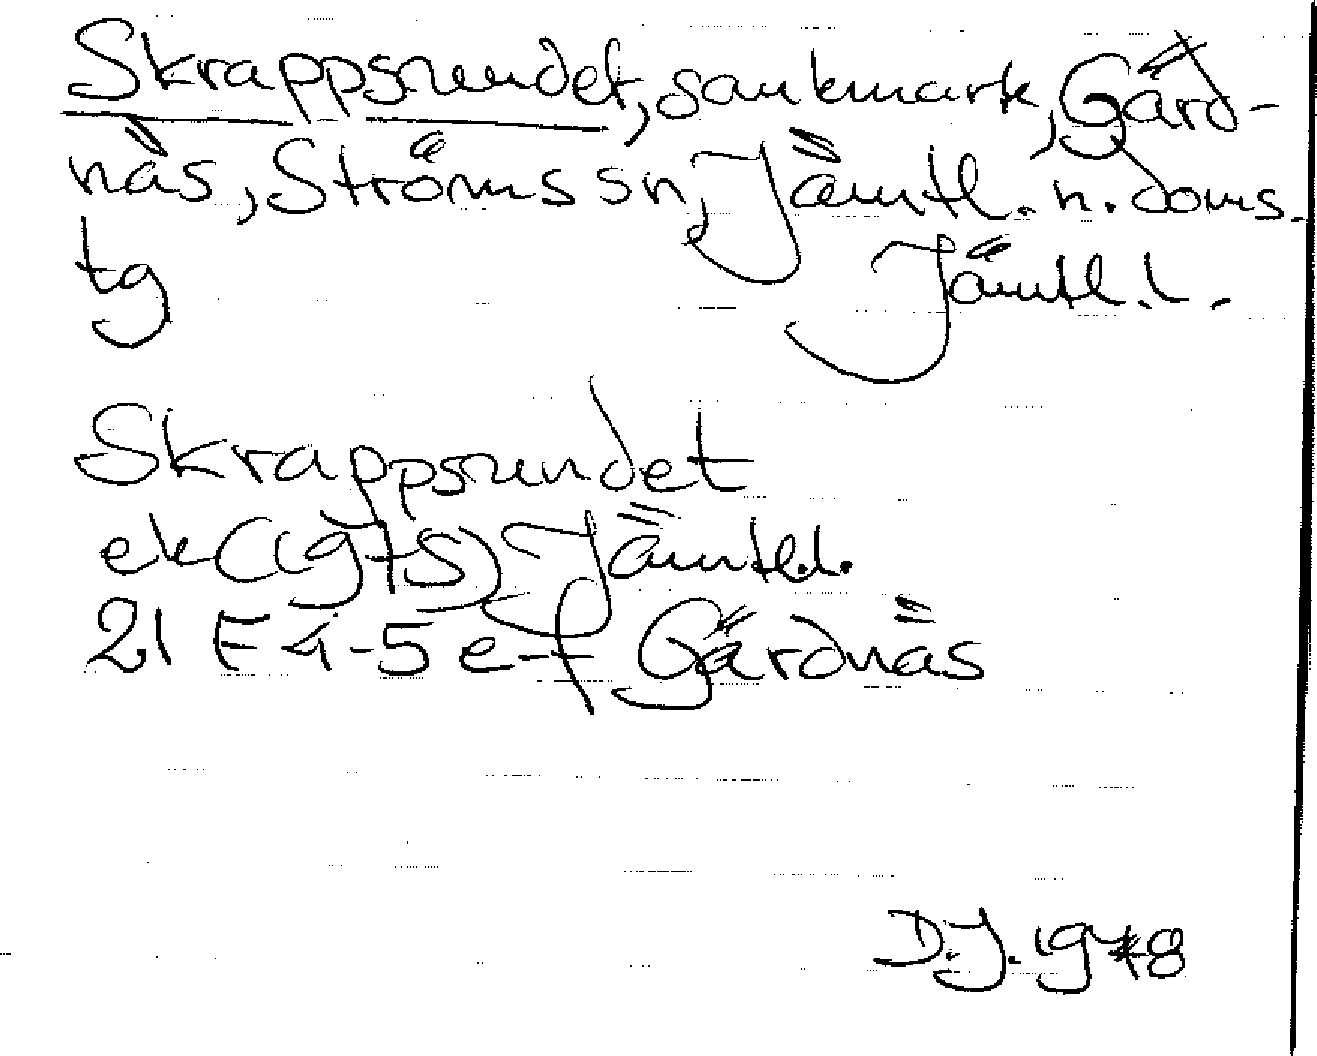 Skrappsrundet, sankmark, Gärd-
näs, Ströms sn, Jämtl. n. doms.
tg Jämtl. l.
Skrappsrundet
ek (1975) Jämtl.l.
21 E 4-5 e-f Gärdnäs
D.J. 1978